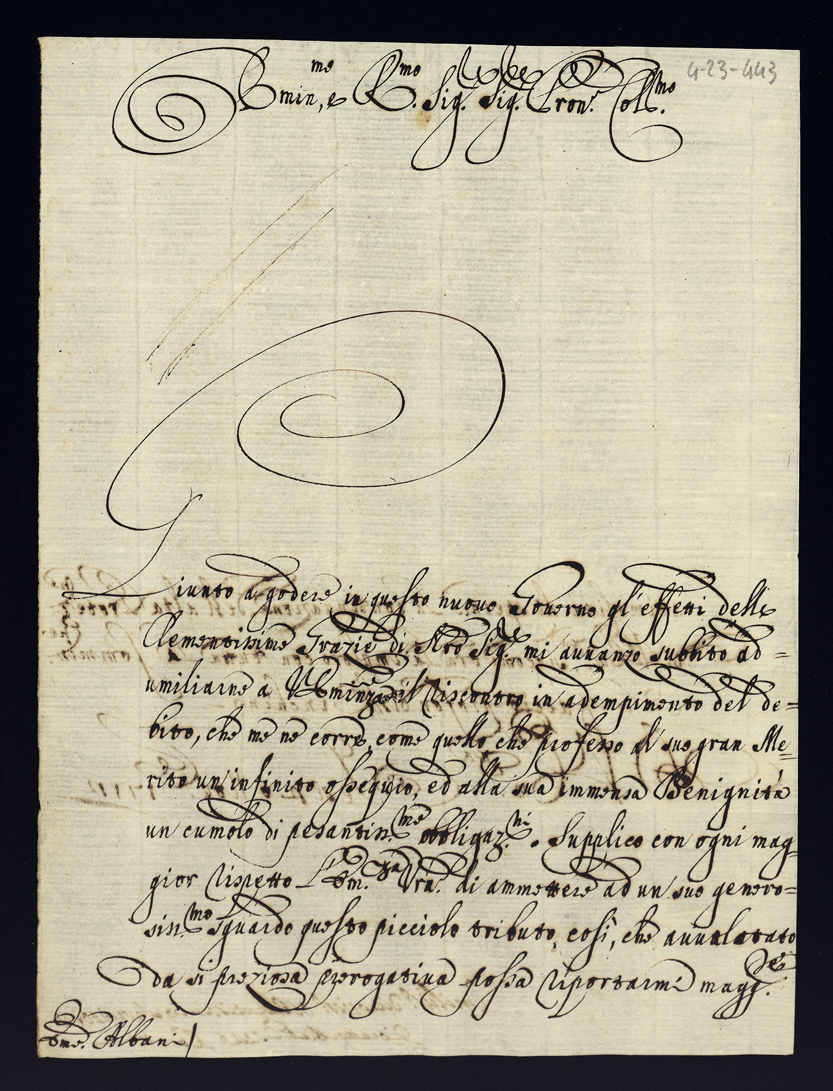 4-23-443
Emin.me e R.mo Sig. Sig. Pron. Coll.mo
Giunto a godere in questo nuovo Governo gl'effetti delle
Clementissime Grazie di Nro Sig.re mi avvanzo subbito ad=
umiliarne a V Eminza il riscontro in adempimento del de=
bito, che me ne corre, come quello che professo al suo gran Me=
rito un'infinito ossequio, ed alla sua immensa Benignità
un cumolo di pesantiss.me obbligaz.ni. Supplico con ogni mag=
gior rispetto l'Em.za Vra. di ammettere ad un suo genero=
siss.mo sguardo questo picciolo tributo, così, che avvalorato
da si preziosa prerogativa possa riportarmi magg.re
Em.e Albani